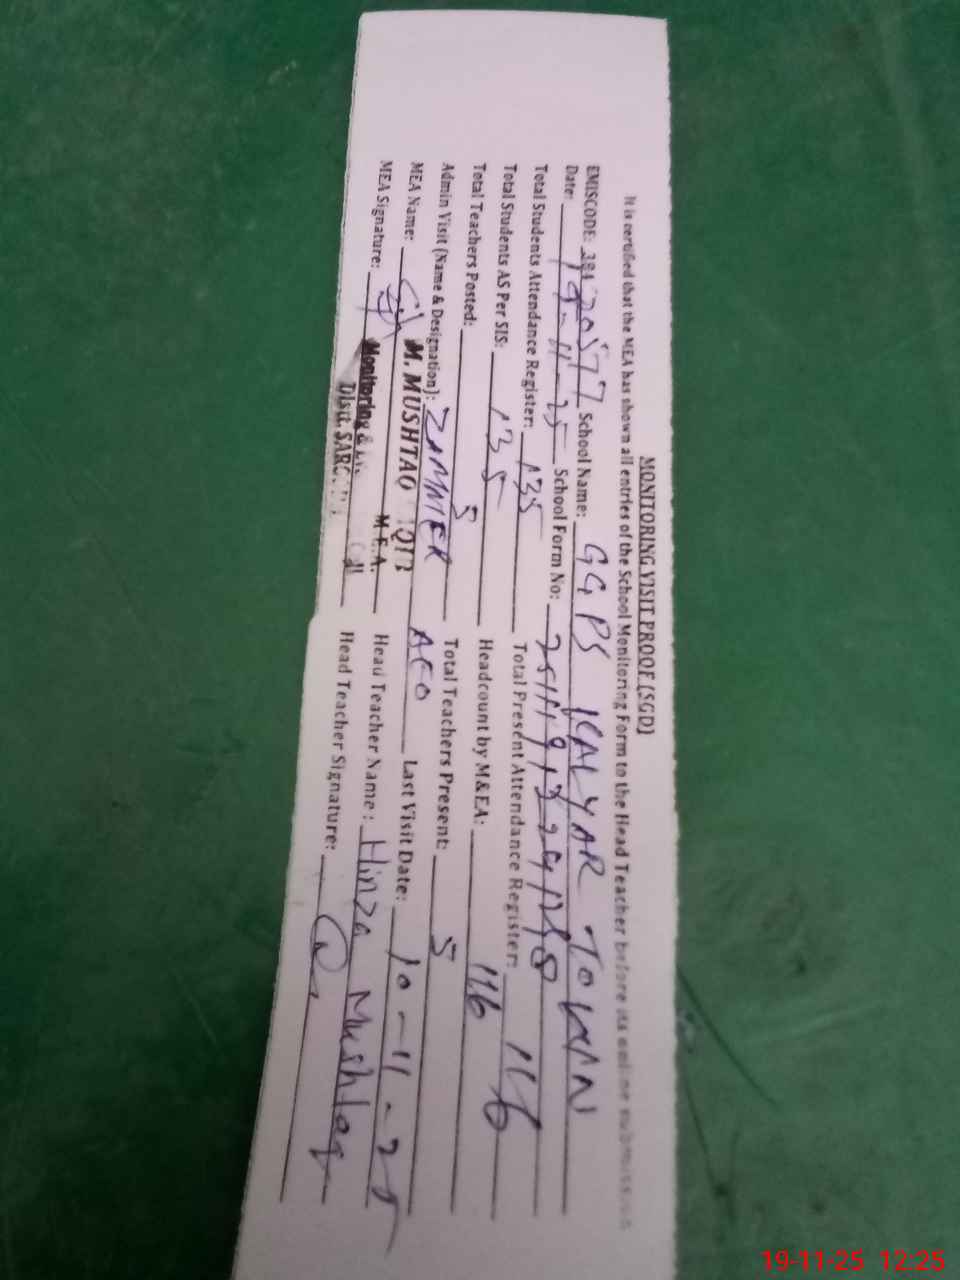 MONITORING VISIT PROOF [SGD]
It is certified that the MEA has shown all entries of the School Monitoring Form to the Head Teacher before its online submission
EMISCODE: School Name: GGPS KALYAR TOWAN
Date: 19-11-25 School Form No:
Total Students Attendance Register: 135 Total Present Attendance Register: 116
Total Students AS Per SIS: 135 Headcount by M&EA: 116
Total Teachers Posted: 5 Total Teachers Present: 5
Admin Visit (Name & Designation): ZAMMER AEO Last Visit Date: 10-11-25
MEA Name: M. MUSHTAQ M.E.A. Head Teacher Name: Hinza Mushtaq
MEA Signature: Monitoring & Cell Head Teacher Signature:
Distt. SARG
19-11-25 12:25